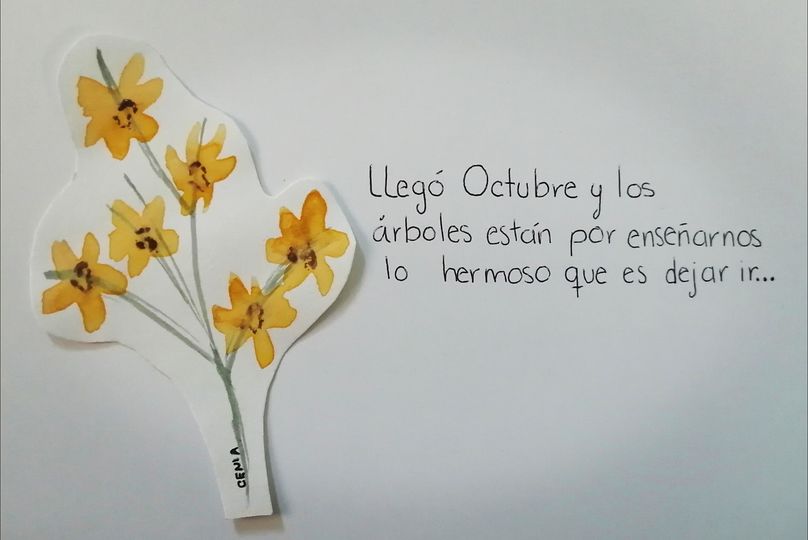 CENIA
LLegó Octubre y los
árboles están por enseñarnos
lo hermoso que es dejar ir...